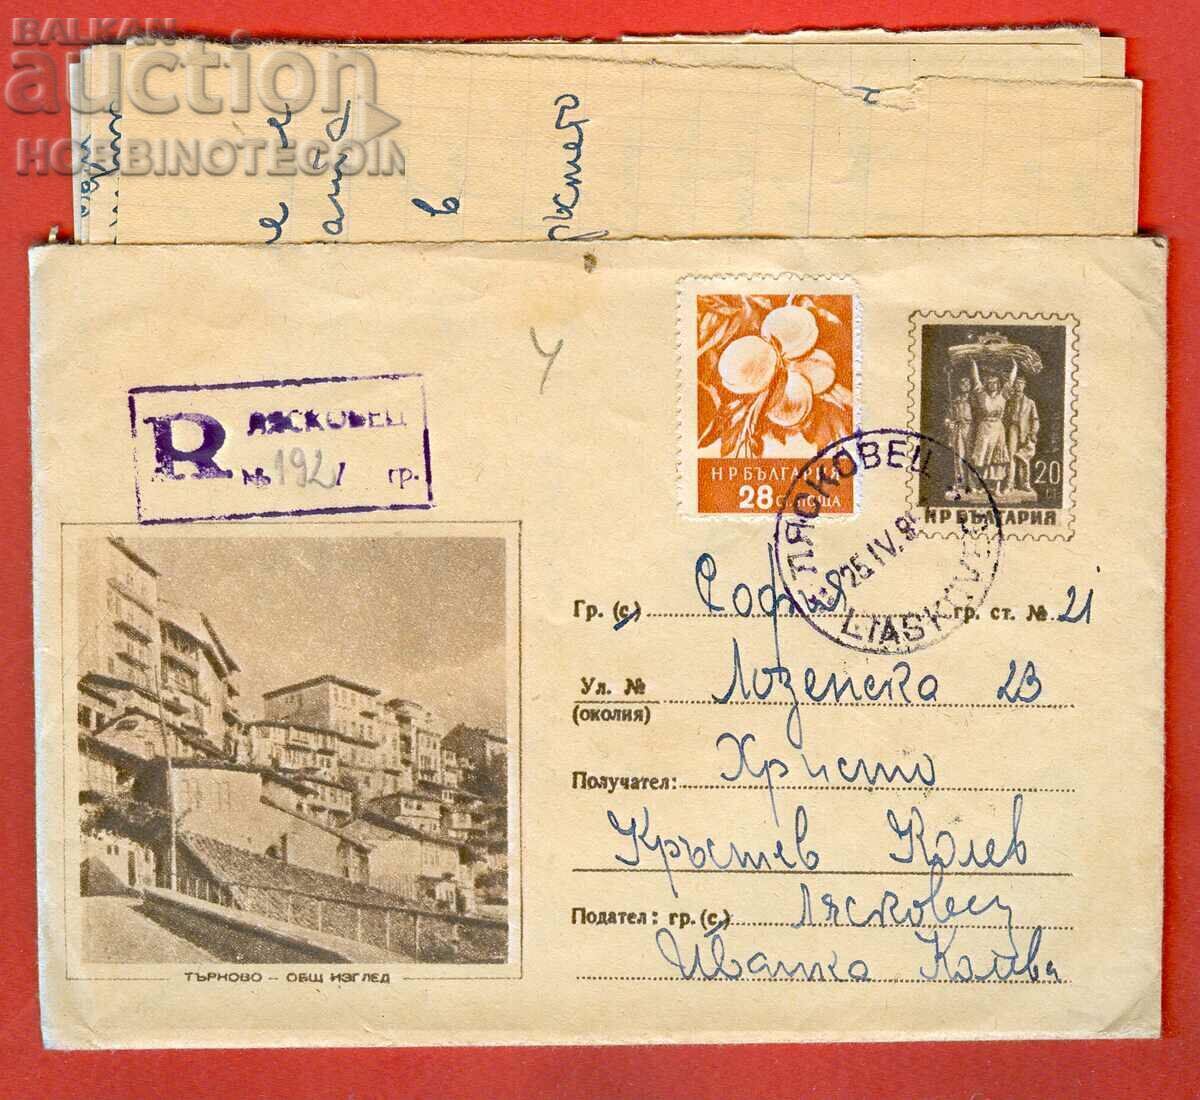 BALKAN
auction
HOBBINOTECOIN
в
R ЛЯСКОВЕЦ
№ 192/ гр.
НР БЪЛГАРИЯ
28 СТ. ПОЩА
20
НР БЪЛГАРИЯ
ЛЯСКОВЕЦ
25.IV.
LIASKOVEC
Гр. (с.) София гр. ст. № 21
Ул. № Лозенска 23
(околия)
Получател: Христо
Кръстев Колев
Подател: гр. (с.) Лясковец
Иванка Колева
ТЪРНОВО – ОБЩ ИЗГЛЕД